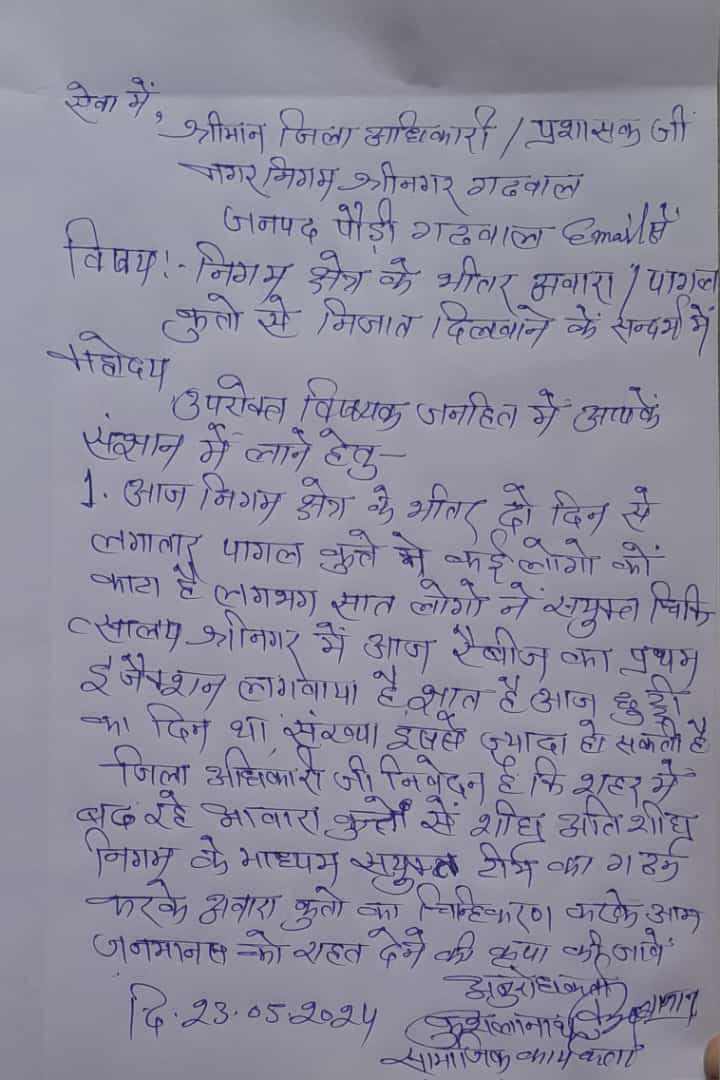 सेवा में,
श्रीमान जिला अधिकारी / प्रशासक जी
नगर निगम श्रीनगर गढवाल
जनपद पौड़ी गढवाल Email से
विषय:- निगम क्षेत्र के भीतर अवारा / पागल
कुतो से निजात दिलवाने के सन्दर्भ में
महोदय
उपरोक्त विषयक जनहित में आपके
संज्ञान में लाने हेतु-
1. आज निगम क्षेत्र के भीतर दो दिन से
लगातार पागल कुत्ते ने कई लोगो को
काटा है लगभग सात लोगो ने सयुक्त चिकि
त्सालय श्रीनगर में आज रैबीज का प्रथम
इंजैक्शन लगवाया है, ज्ञात है आज छुट्टी
का दिन था, संख्या इससे ज्यादा हो सकती है
जिला अधिकारी जी निवेदन है कि शहर में
बढ रहे आवारा कुत्तों से शीघ्र अति शीघ्र
निगम के माध्यम सयुक्त टीम का गठन
करके अवारा कुतो का चिन्हिकरण करके आम
जनमानस को राहत देने की कृपा की जावें
अनुरोधकर्ता
दि. 23.05.2024 कुशलानाथ
सामाजिक कार्यकर्ता